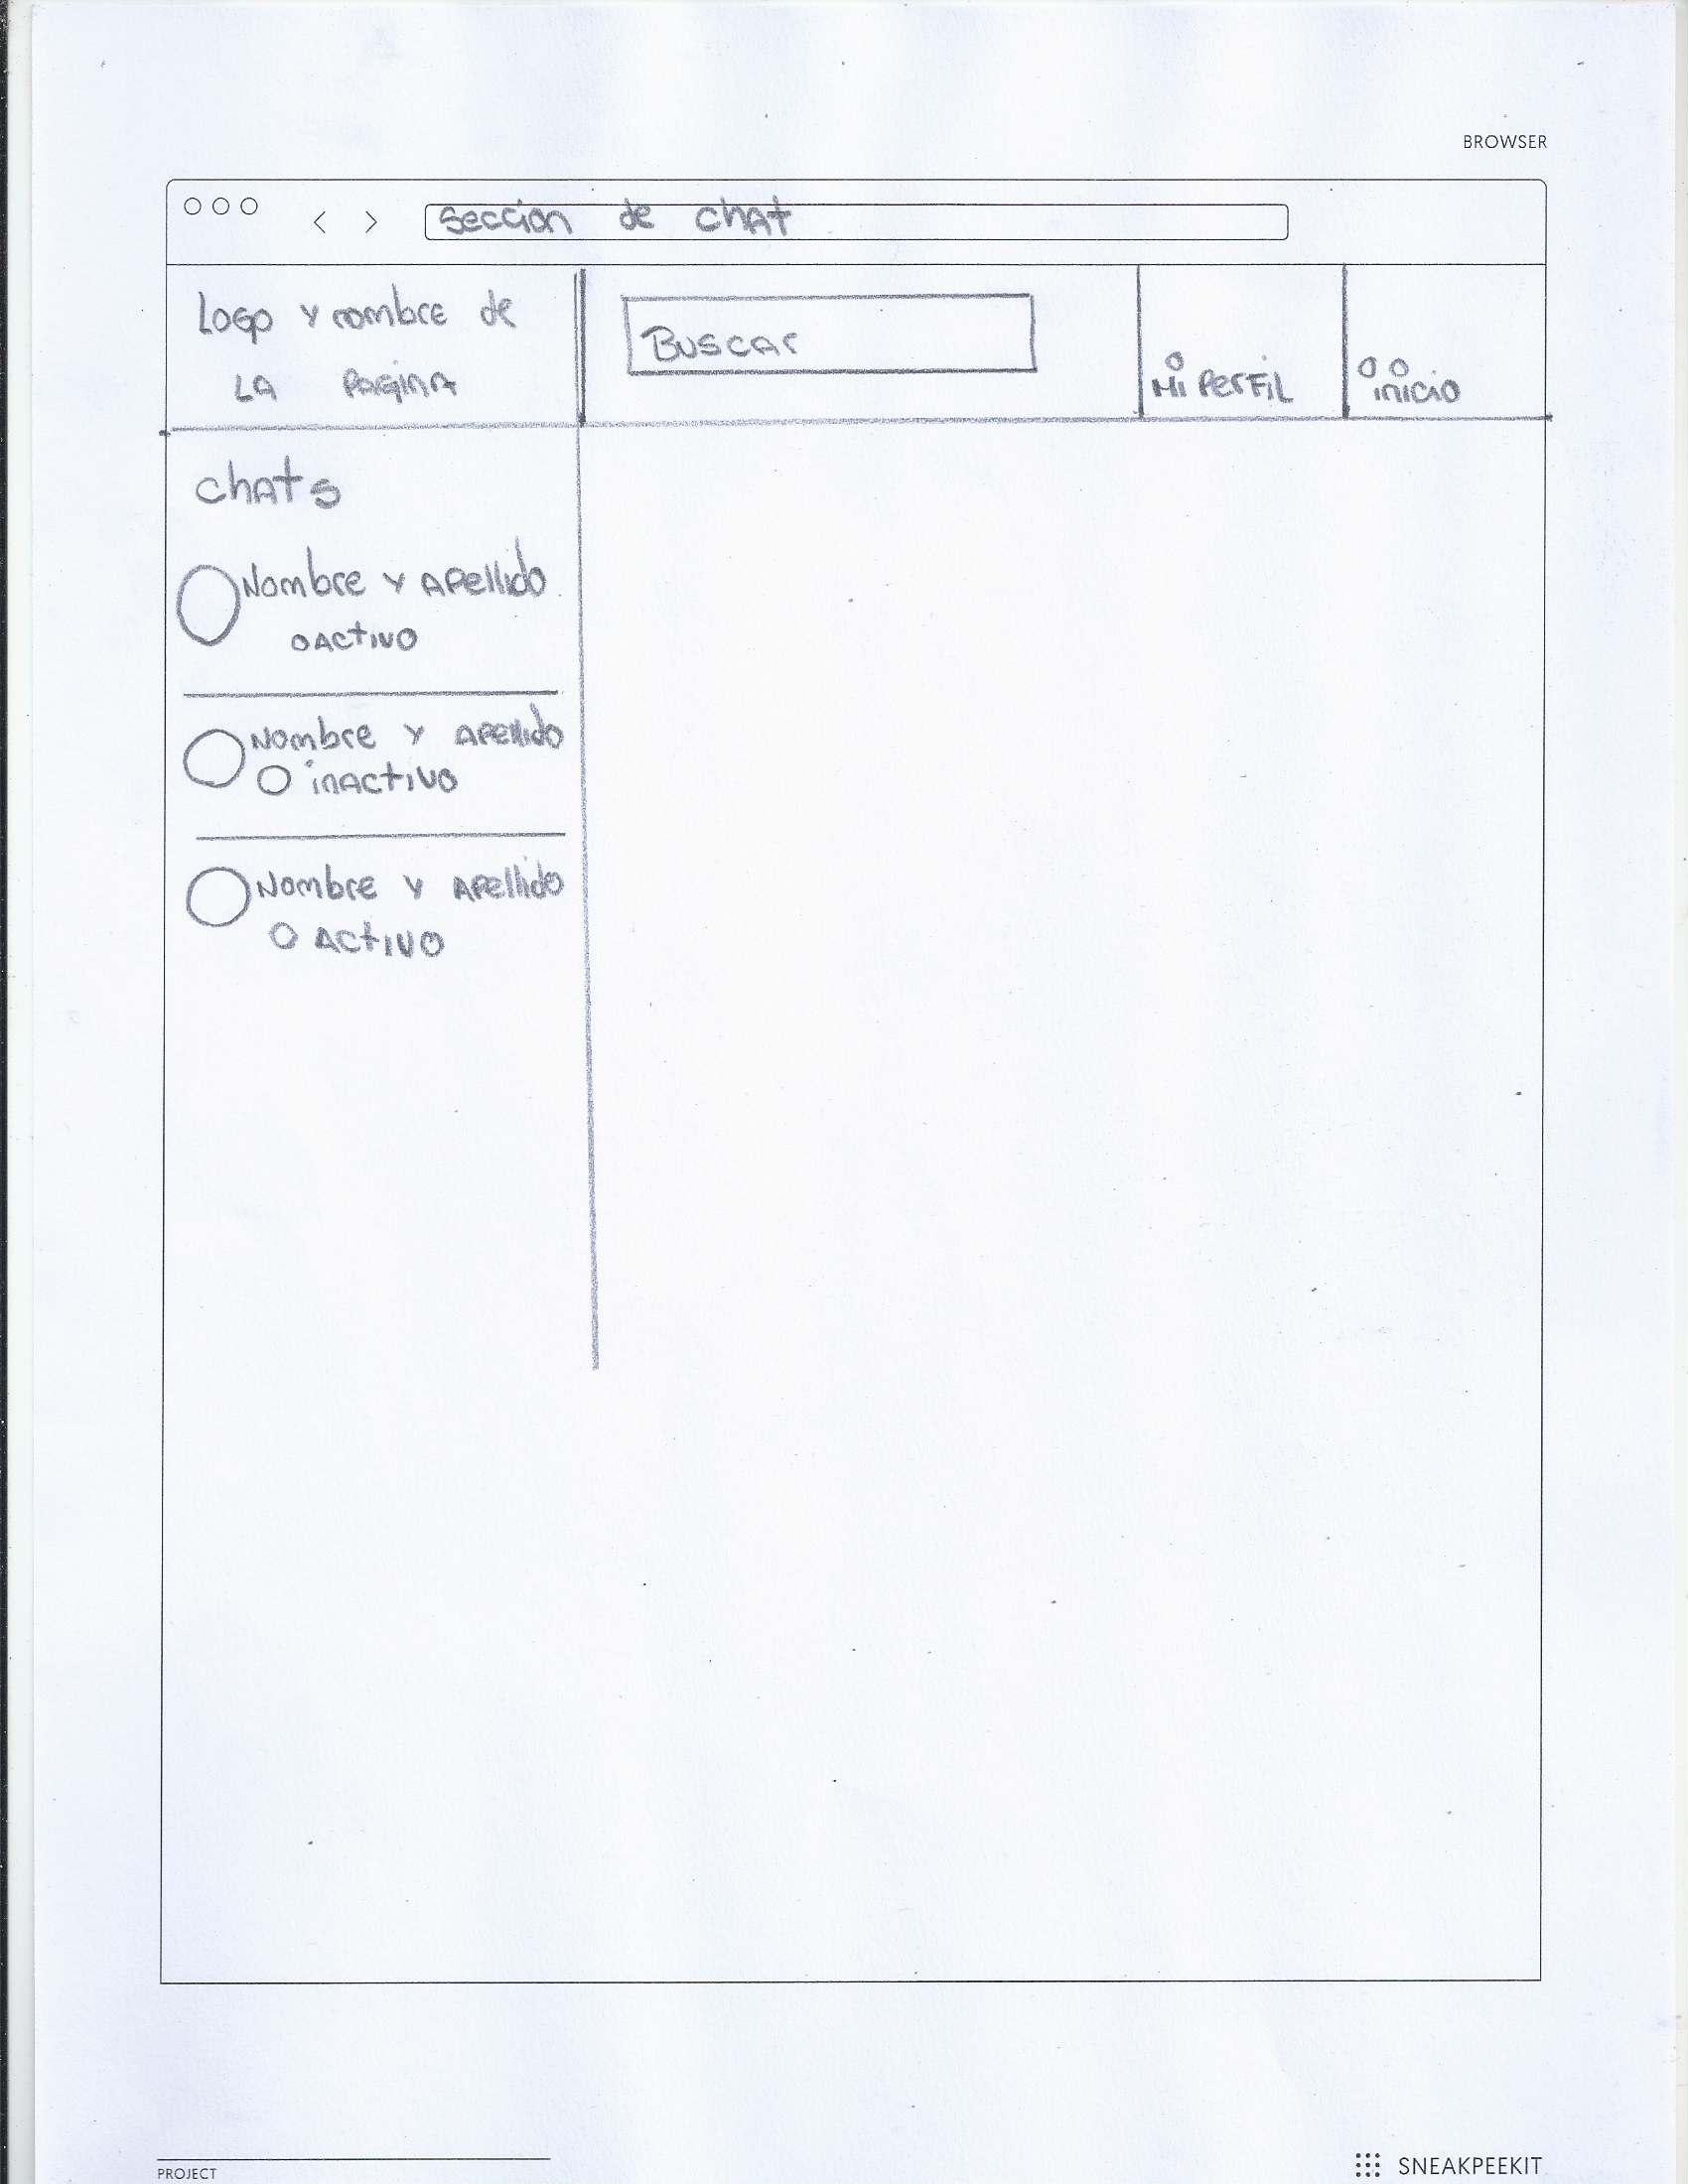 BROWSER
Sección de chat
Logo y nombre de
LA PAGINA
Buscar
Mi Perfil
inicio
chats
Nombre y Apellido
Activo
Nombre y Apellido
inactivo
Nombre y Apellido
Activo
PROJECT
SNEAKPEEKIT